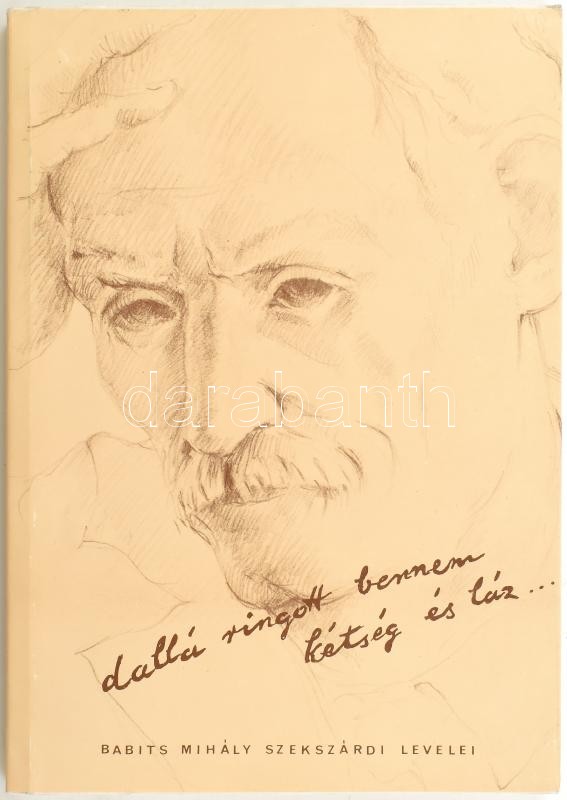 darabanth
dallá ringott bennem
kétség és láz...
BABITS MIHÁLY SZEKSZÁRDI LEVELEI